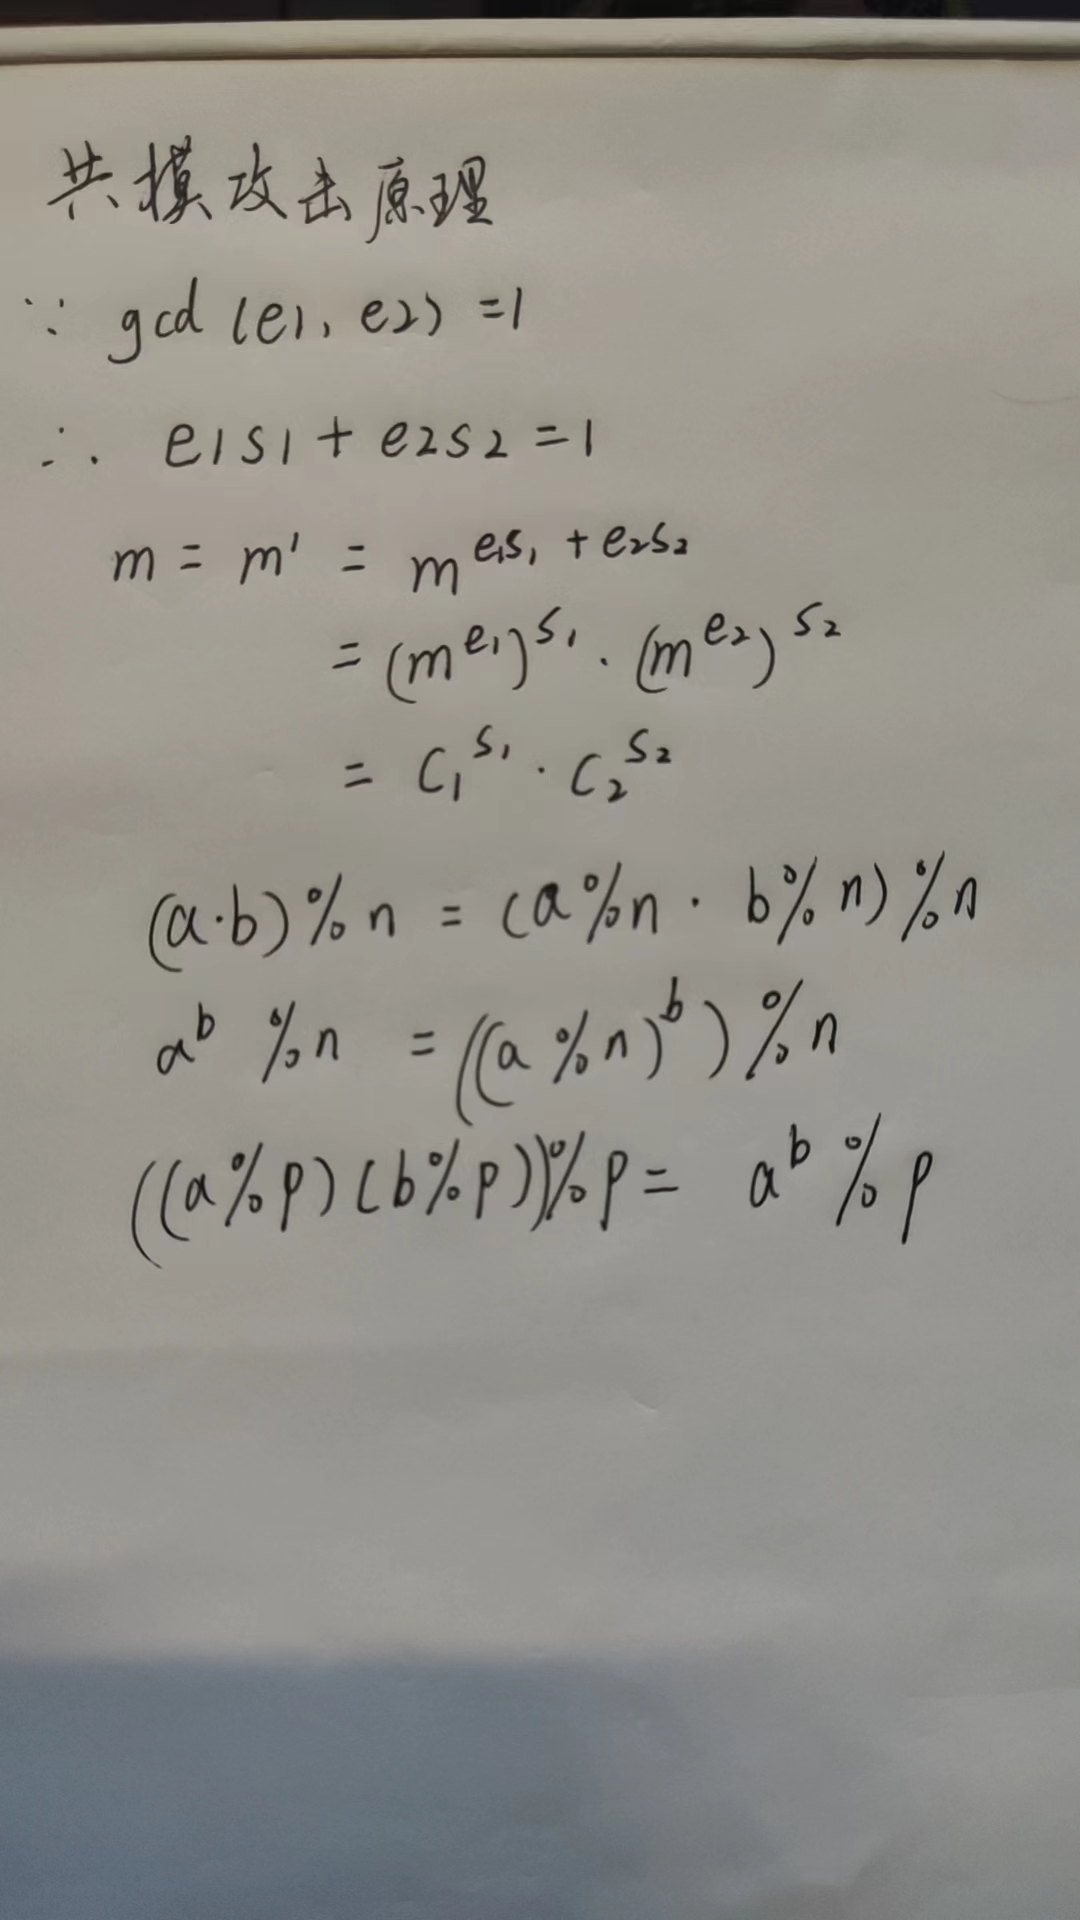 共模攻击原理
∵ gcd (e1, e2) =1
∴ e1s1 + e2s2 =1
m = m¹ = m^{e₁s₁ + e₂s₂}
= (m^{e₁})^{s₁} · (m^{e₂})^{s₂}
= C₁^{s₁} · C₂^{s₂}
(a·b)%n = (a%n · b%n)%n
a^b %n = ((a%n)^b)%n
((a%p)(b%p))%p = a^b %p